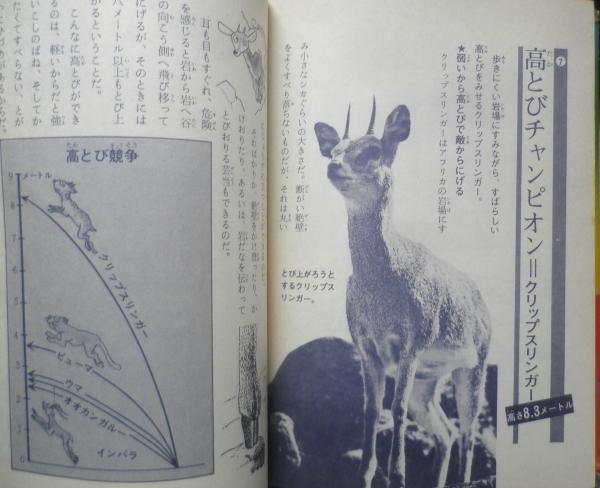 7
高とびチャンピオン＝クリップスリンガー
高さ8.3メートル
歩きにくい岩場にすみながら、すばらしい
高とびをみせるクリップスリンガー。
★弱いから高とびで敵からにげる
クリップスリンガーはアフリカの岩場にす
み小さなシカぐらいの大きさだ。断がい絶壁
をよくすべり落ちないものだが、それは丸い
とび上がろうと
するクリップス
リンガー。
けおりたり、あるいは、岩だなを伝わって
とびおりる芸当もできるのだ。
耳も目もすぐれ、危険
を感じると岩から岩へ谷
の向こう側へ飛び移って
にげるが、そのときには
八メートル以上もとび上
がるということだ。
こんなに高とびができ
るのは、軽いからだと強
いこしのばね、そしてか
たくてすべらない、とが
高とび競争
メートル
9
8
7
6
5
4
3
2
1
0
クリップスリンガー
ピューマ
ウマ
オオカンガルー
インパラ